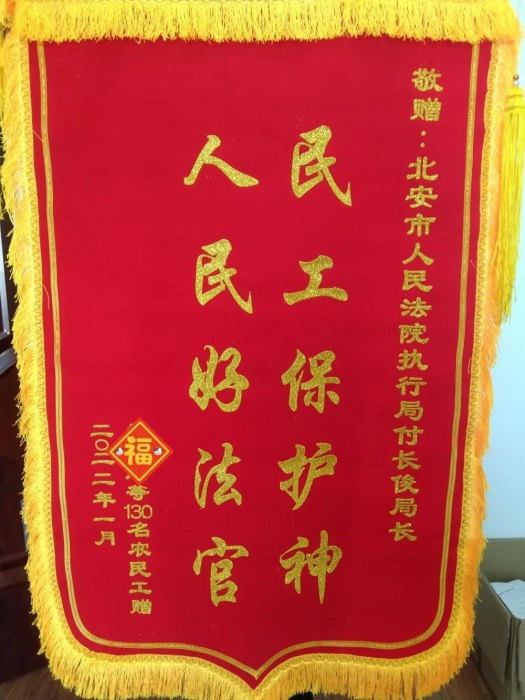 敬赠：北安市人民法院执行局付长俊局长
民工保护神
人民好法官
福
等130名农民工赠
二〇二二年一月